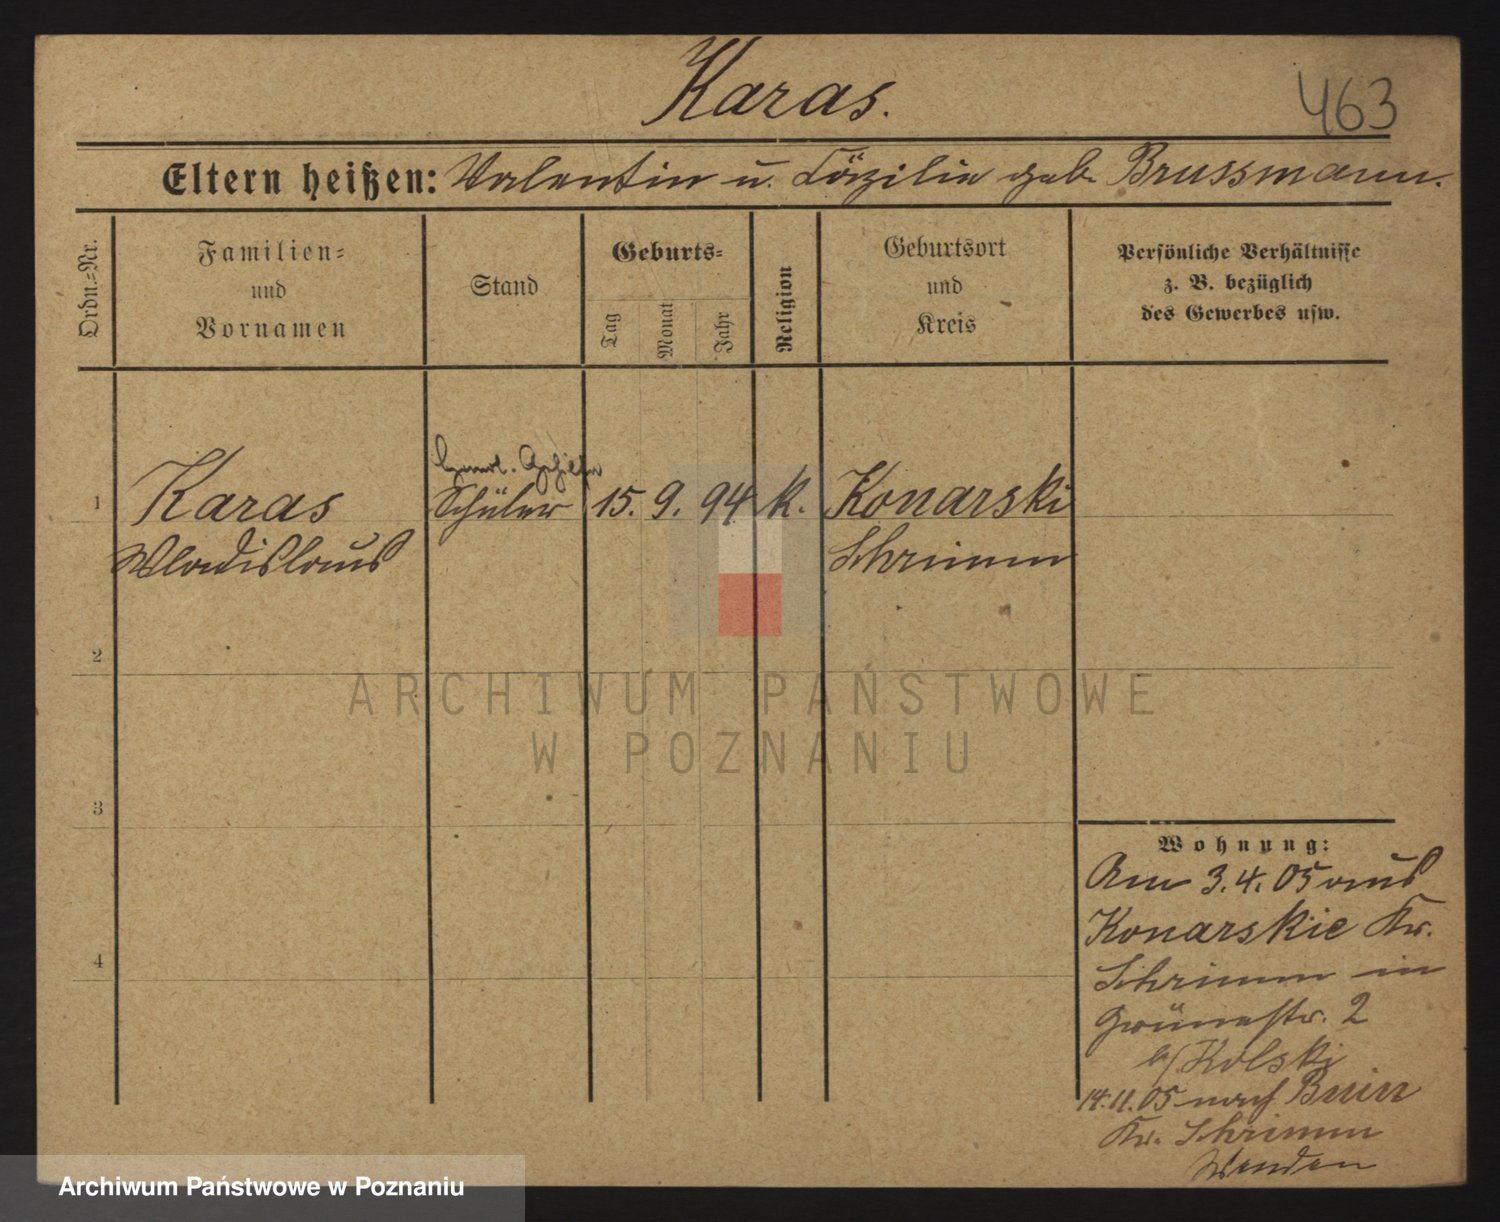 Karas.
463
Eltern heißen: Valentin u. Cäzilie geb. Brussmann.
Ordn.-Nr.
Familien-
und
Vornamen
Stand
Geburts-
Tag
Monat
Jahr
Religion
Geburtsort
und
Kreis
Persönliche Verhältnisse
z. B. bezüglich
des Gewerbes usw.
1
Karas
Wladislaus
Schüler
15. 9. 94
k.
Konarski
Schrimm
2
3
4
Wohnung:
Am 3.4.05 aus
Konarskie Kr.
Schrimm in
Grünestr. 2
b/ Kolski
14.11.05 nach Bnin
Kr. Schrimm
Wenden
ARCHIWUM PAŃSTWOWE
W POZNANIU
Archiwum Państwowe w Poznaniu